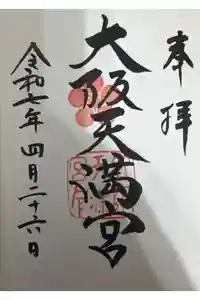 奉拝
大阪天満宮
令和七年四月二十六日